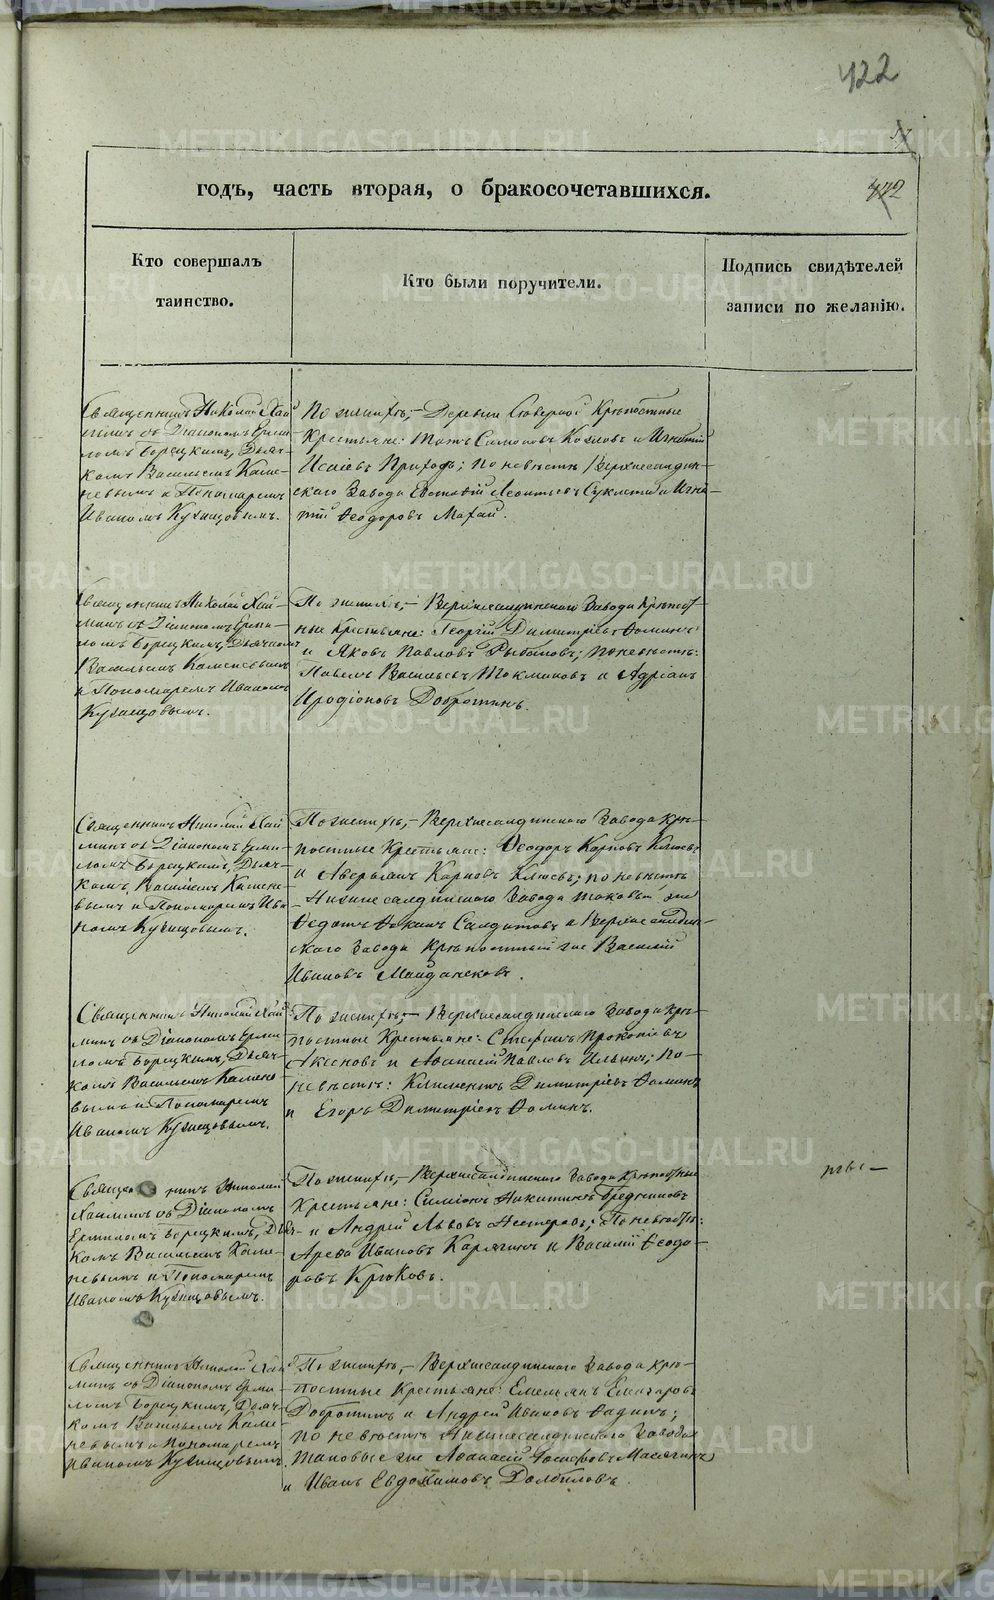 422
57
442
годъ, часть вторая, о бракосочетавшихся.
Кто совершалъ
таинство.
Кто были поручители.
Подпись свидѣтелей
записи по желанію.
Священникъ Николай Хай
минъ съ Діакономъ Ерми
ломъ Борецкимъ, Дьяч-
комъ Васильемъ Каме-
невымъ и Пономаремъ
Иваномъ Кузнецовымъ.
По женихѣ,- Деревни Северной Крѣпостные
Крестьяне: Самсоновъ Козловъ и Игнатій
Исаіевъ; по невѣстѣ Верхнесалдин-
скаго Завода Евстафій Леонтьевъ и Игна-
тій Ѳеодоровъ
Священникъ Николай Хай-
минъ съ Діакономъ Ерми-
ломъ Борецкимъ, Дьячкомъ
Васильемъ Каменевымъ
и Пономаремъ Иваномъ
Кузнецовымъ.
По женихѣ,- Верхнесалдинскаго Завода Крѣпост-
ные Крестьяне: Георгій Димитріевъ Ѳоминъ
и Яковъ Павловъ; по невѣстѣ:
Павелъ Васильевъ Токмаковъ и Адріанъ
Иродіоновъ Добротинъ.
Священникъ Николай Хай
минъ съ Діакономъ Ерми-
ломъ Борецкимъ, Дьяч-
комъ Васильемъ Камене-
вымъ и Пономаремъ Ива
номъ Кузнецовымъ.
По женихѣ,- Верхнесалдинскаго Завода Крѣ-
постные Крестьяне: Ѳеодоръ Карповъ Клюевъ
и Аверьянъ Карповъ Клюевъ; по невѣстѣ
Нижнесалдинскаго Завода таковый же
Ѳедотъ Ѳокинъ Салдатовъ и Верхнесалдин-
скаго Завода Крѣпостный же Василій
Ивановъ Майданековъ.
Священникъ Николай Хай
минъ съ Діакономъ Ерми
ломъ Борецкимъ, Дьяч-
комъ Васильемъ Камене
вымъ и Пономаремъ
Иваномъ Кузнецовымъ.
По женихѣ,- Верхнесалдинскаго Завода Крѣ-
постные Крестьяне: Стефанъ Прокопіевъ
Аксеновъ и Аѳанасій Павловъ Ильинъ; по
невѣстѣ: Климентъ Димитріевъ Ѳоминъ
и Егоръ Димитріевъ Ѳоминъ.
Священникъ Николай
Хайминъ съ Діакономъ
Ермиломъ Борецкимъ, Дьяч-
комъ Васильемъ Каме-
невымъ и Пономаремъ
Иваномъ Кузнецовымъ.
По женихѣ,- Верхнесалдинскаго Завода Крѣпостные
Крестьяне: Симеонъ Никитинъ Гредкиновъ
и Андрей Львовъ Нестеровъ; По невѣстѣ:
Ареѳа Ивановъ Карягинъ и Василій Ѳеодо-
ровъ Крюковъ.
Священникъ Николай Хай
минъ съ Діакономъ Ерми-
ломъ Борецкимъ, Дьяч-
комъ Васильемъ Каме-
невымъ и Пономаремъ
Иваномъ Кузнецовымъ.
По женихѣ,- Верхнесалдинскаго Завода Крѣ-
постные Крестьяне: Емельянъ
Добротинъ и Андрей Ивановъ;
по невѣстѣ Нижнесалдинскаго Завода
таковые же Аѳанасій Іосифовъ Масягинъ
и Иванъ Евдокимовъ Долбиловъ.
METRIKI.GASO-URAL.RU